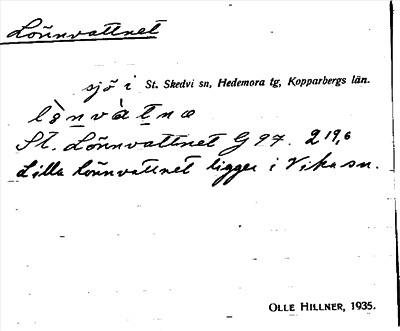 Lönnvattnet
sjö i St. Skedvi sn, Hedemora tg, Kopparbergs län.
lò̀nvàtnɷ
St. Lönnvattnet G 97. 219,6
Lilla Lönnvattnet ligger i Vika sn.
OLLE HILLNER, 1935.